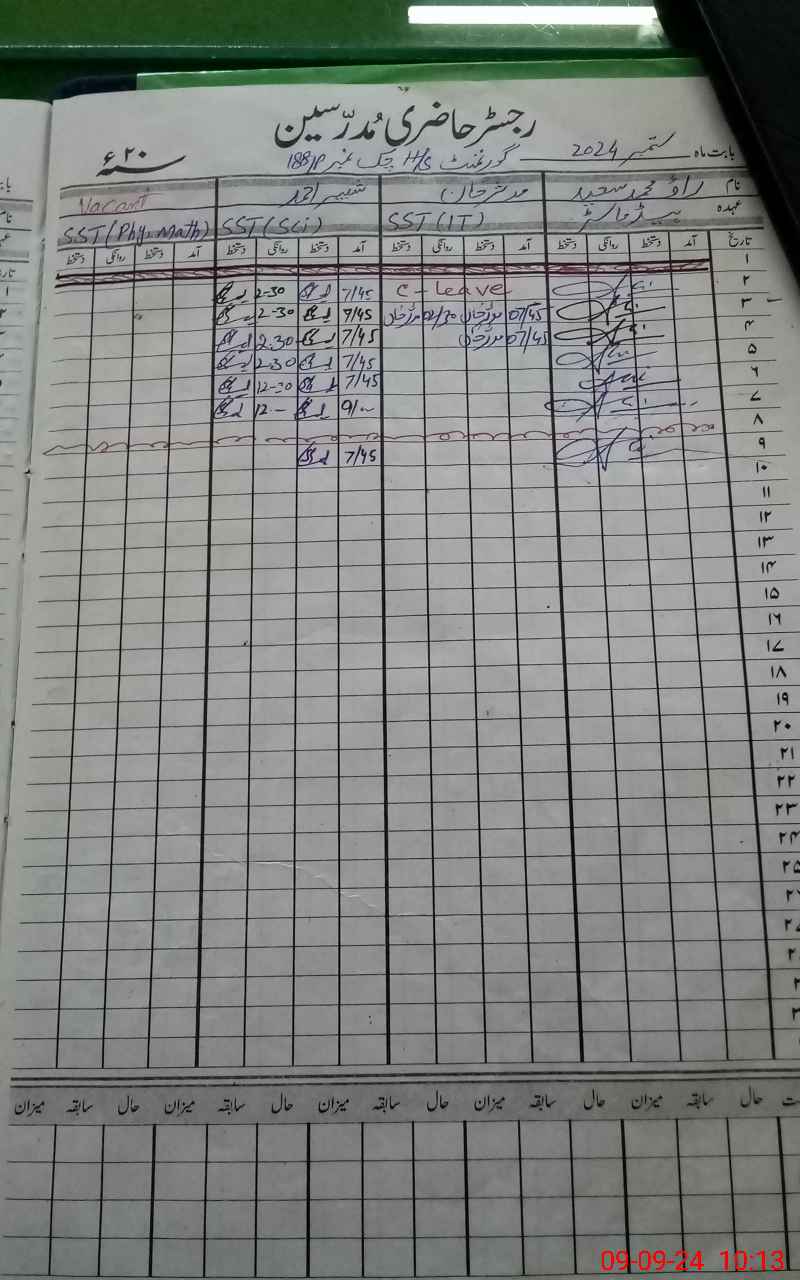 رجسٹر حاضری مُدرّسین
بابت ماہ ستمبر 2024 گورنمنٹ H/S چک نمبر 188/P سنہ ۲۰ ء
نام راؤ محمد سعید مدثر خان شبیر احمد Vacant
عہدہ ہیڈ ماسٹر SST (IT) SST (Sci) SST (Phy. Math)
تاریخ آمد دستخط روانگی دستخط آمد دستخط روانگی دستخط آمد دستخط روانگی دستخط آمد دستخط روانگی دستخط
۱
۲ C-Leave 7/45 2-30
۳ 07/45 مدثر خان 02/30 مدثر خان 7/45 2-30
۴ 07/45 مدثر خان 7/45 2.30
۵ 7/45 2.30
۶ 7/45 12-30
۷ 9/-- 12--
۸
۹ 7/45
۱۰
۱۱
۱۲
۱۳
۱۴
۱۵
۱۶
۱۷
۱۸
۱۹
۲۰
۲۱
۲۲
۲۳
۲۴
۲۵
حال سابقہ میزان حال سابقہ میزان حال سابقہ میزان حال سابقہ میزان حال سابقہ میزان
09-09-24 10:13